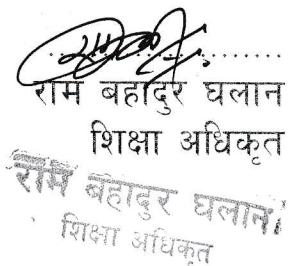 राम बहादुर घलान
शिक्षा अधिकृत
राम बहादुर घलान
शिक्षा अधिकृत